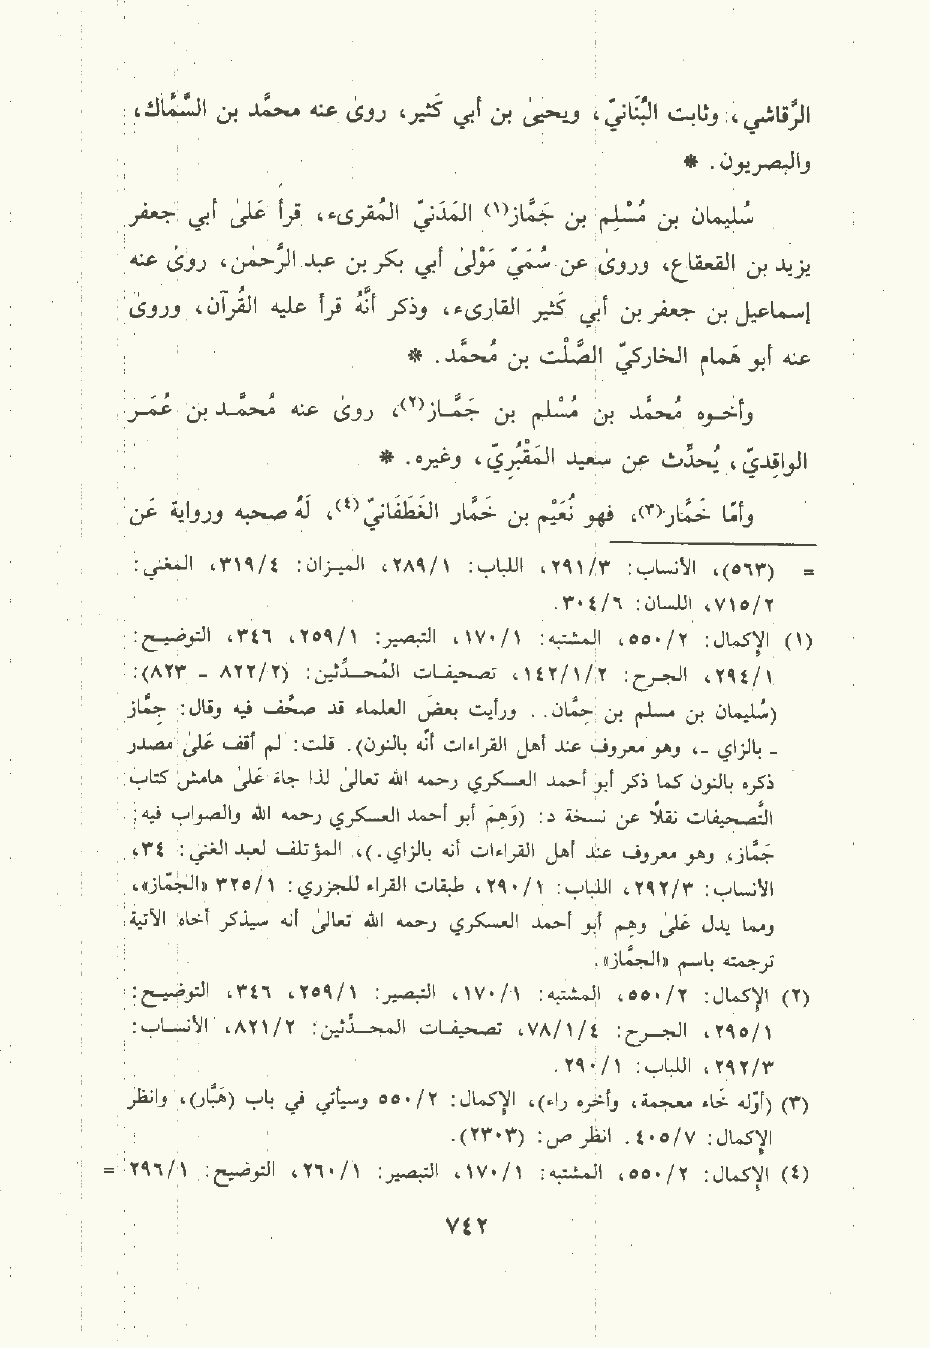 الرَّقاشي، وثابت البُنَانيّ، ويحيىٰ بن أبي كَثير، روىٰ عنه محمَّد بن السَّمَّاك،
والبصريون. *
سُليمان بن مُسْلِم بن جَمَّاز(١) المَدَنيّ المُقرىء، قرأ عَلىٰ أبي جعفر
يزيد بن القعقاع، وروىٰ عن سُمَيّ مَوْلىٰ أبي بكر بن عبد الرَّحمٰن، روىٰ عنه
إسماعيل بن جعفر بن أبي كَثير القارىء، وذكر أنَّهُ قرأ عليه القُرآن، وروىٰ
عنه أبو هَمام الخاركيّ الصَّلْت بن مُحمَّد. *
وأخـوه مُحمَّد بن مُسلم بن جَمَّـاز(٢)، روىٰ عنه مُحمَّـد بن عُمَـر
الواقِديّ، يُحدِّث عن سعيد المَقْبُرِيّ، وغيره. *
وأمّا خَمَّار(٣)، فهو نُعَيْم بن خَمَّار الغَطَفَانيّ(٤)، لَهُ صحبه ورواية عَن
= (٥٦٣)، الأنساب: ٢٩١/٣، اللباب: ٢٨٩/١، الميـزان: ٣١٩/٤، المغني:
٧١٥/٢، اللسان: ٣٠٤/٦.
(١) الإكمال: ٥٥٠/٢، المشتبه: ١٧٠/١، التبصير: ٢٥٩/١، ٣٤٦، التوضيـح:
٢٩٤/١، الجـرح: ١٤٢/١/٢، تصحيفـات المُحـدِّثين: (٨٢٢/٢ - ٨٢٣):
(سُليمان بن مسلم بن جِمَّان.. ورأيت بعضَ العلماء قد صحَّف فيه وقال: جِمَّاز
- بالزاي -، وهو معروف عند أهل القراءات أنَّه بالنون). قلت: لم أقف عَلىٰ مصدر
ذكره بالنون كما ذكر أبو أحمد العسكري رحمه الله تعالىٰ لذا جَاءَ عَلىٰ هامش كتاب
التَّصحيفات نقلاً عن نسخة د: (وَهِمَ أبو أحمد العسكري رحمه الله والصواب فيه:
جَمَّاز، وهو معروف عند أهل القراءات أنه بالزاي.)، المؤتلف لعبد الغني: ٣٤،
الأنساب: ٢٩٢/٣، اللباب: ٢٩٠/١، طبقات القراء للجزري: ٣٢٥/١ «الجمَّاز»،
ومما يدل عَلىٰ وهِم أبو أحمد العسكري رحمه الله تعالىٰ أنه سيذكر أخاه الآتية
ترجمته باسم «الجمَّاز».
(٢) الإكمال: ٥٥٠/٢، المشتبه: ١٧٠/١، التبصير: ٢٥٩/١، ٣٤٦، التوضيـح:
٢٩٥/١، الجـرح: ٧٨/١/٤، تصحيفـات المحـدِّثين: ٨٢١/٢، الأنسـاب:
٢٩٢/٣، اللباب: ٢٩٠/١.
(٣) (أوّله خاء معجمة، وأخره راء)، الإكمال: ٥٥٠/٢ وسيأتي في باب (هَبَّار)، وانظر
الإكمال: ٤٠٥/٧. انظر ص: (٢٣٠٣).
(٤) الإكمال: ٥٥٠/٢، المشتبه: ١٧٠/١، التبصير: ٢٦٠/١، التوضيح: ٢٩٦/١ =
٧٤٢